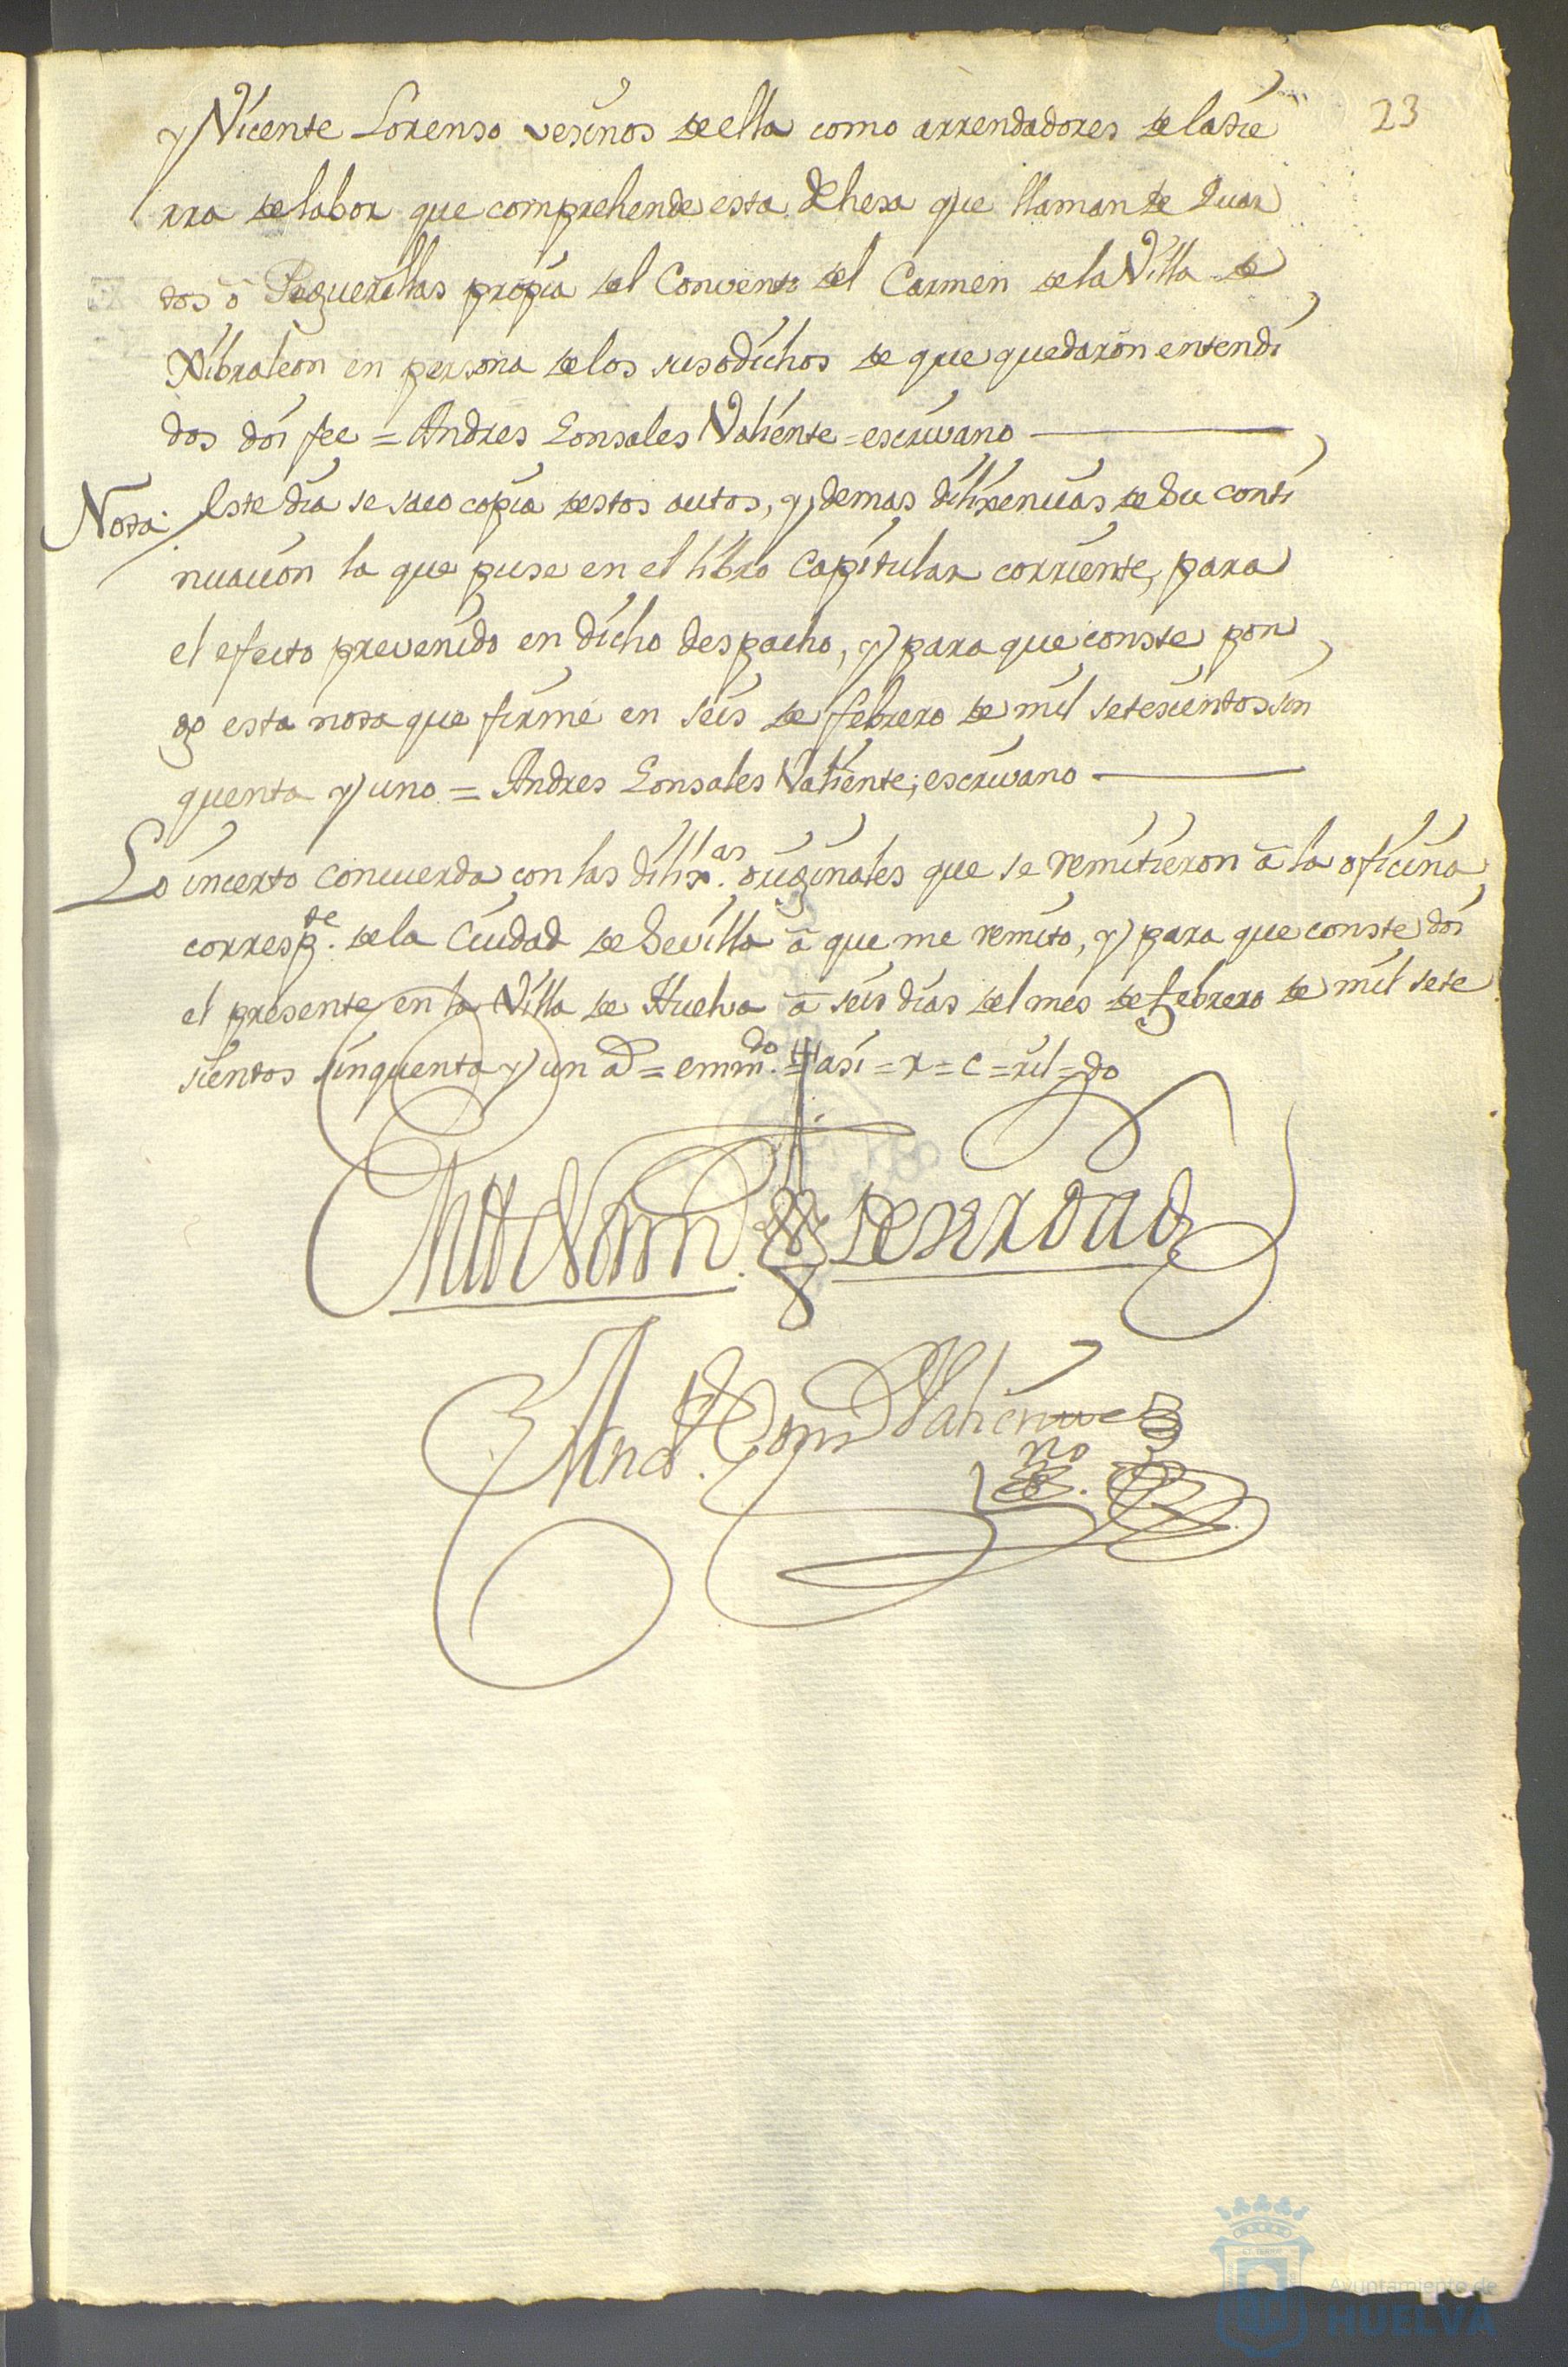 23
y Vicente Lorenso vesinos de ella como arrendadores de la tie
rra de labor que comprehende esta dehesa que llaman de Quar
tos ô Peguerillas propia del Convento del Carmen de la Villa de
Xibraleon en persona de los susodichos de que quedaron entendi
dos doi fee = Andres Gonsales Valiente = escrivano
Nota. Este dia se saco copia destos autos, y demas dilixencias de Su conti
nuacion la que puse en el libro Capitular corriente, para
el efecto prevenido en dicho despacho, y para que conste pon
go esta nota que firmé en seis de febrero de mil setesientos sin
quenta y uno = Andres Gonsales Valiente; escrivano
Lo incerto concuerda con las dilix.as originales que se remitieron â la oficina
corresp.te de la Ciudad de Sevilla â que me remito, y para que conste doi
el presente en la Villa de Huelva â seis dias del mes de febrero de mil sete
sientos sinquenta y un a = emm.do = asi = x = c = xil = do
de verdad
And. Gons Valiente
no
Ayuntamiento de
HUELVA